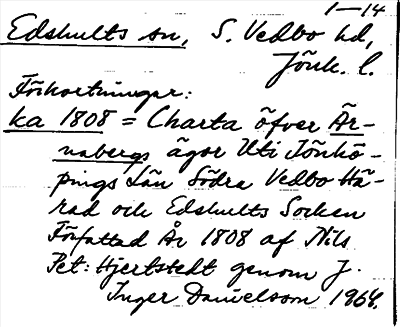 1—14
Edshults sn, S. Vedbo hd,
Jönk. l.
Förkortningar:
ka 1808 = Charta öfver Är-
nabergs ägor Uti Jönkö-
pings Län Södra Vedbo Hä-
rad och Edshults Socken
Författad År 1808 af Nils
Pet: Hjertstedt genom J.
Inger Danielsson 1964.